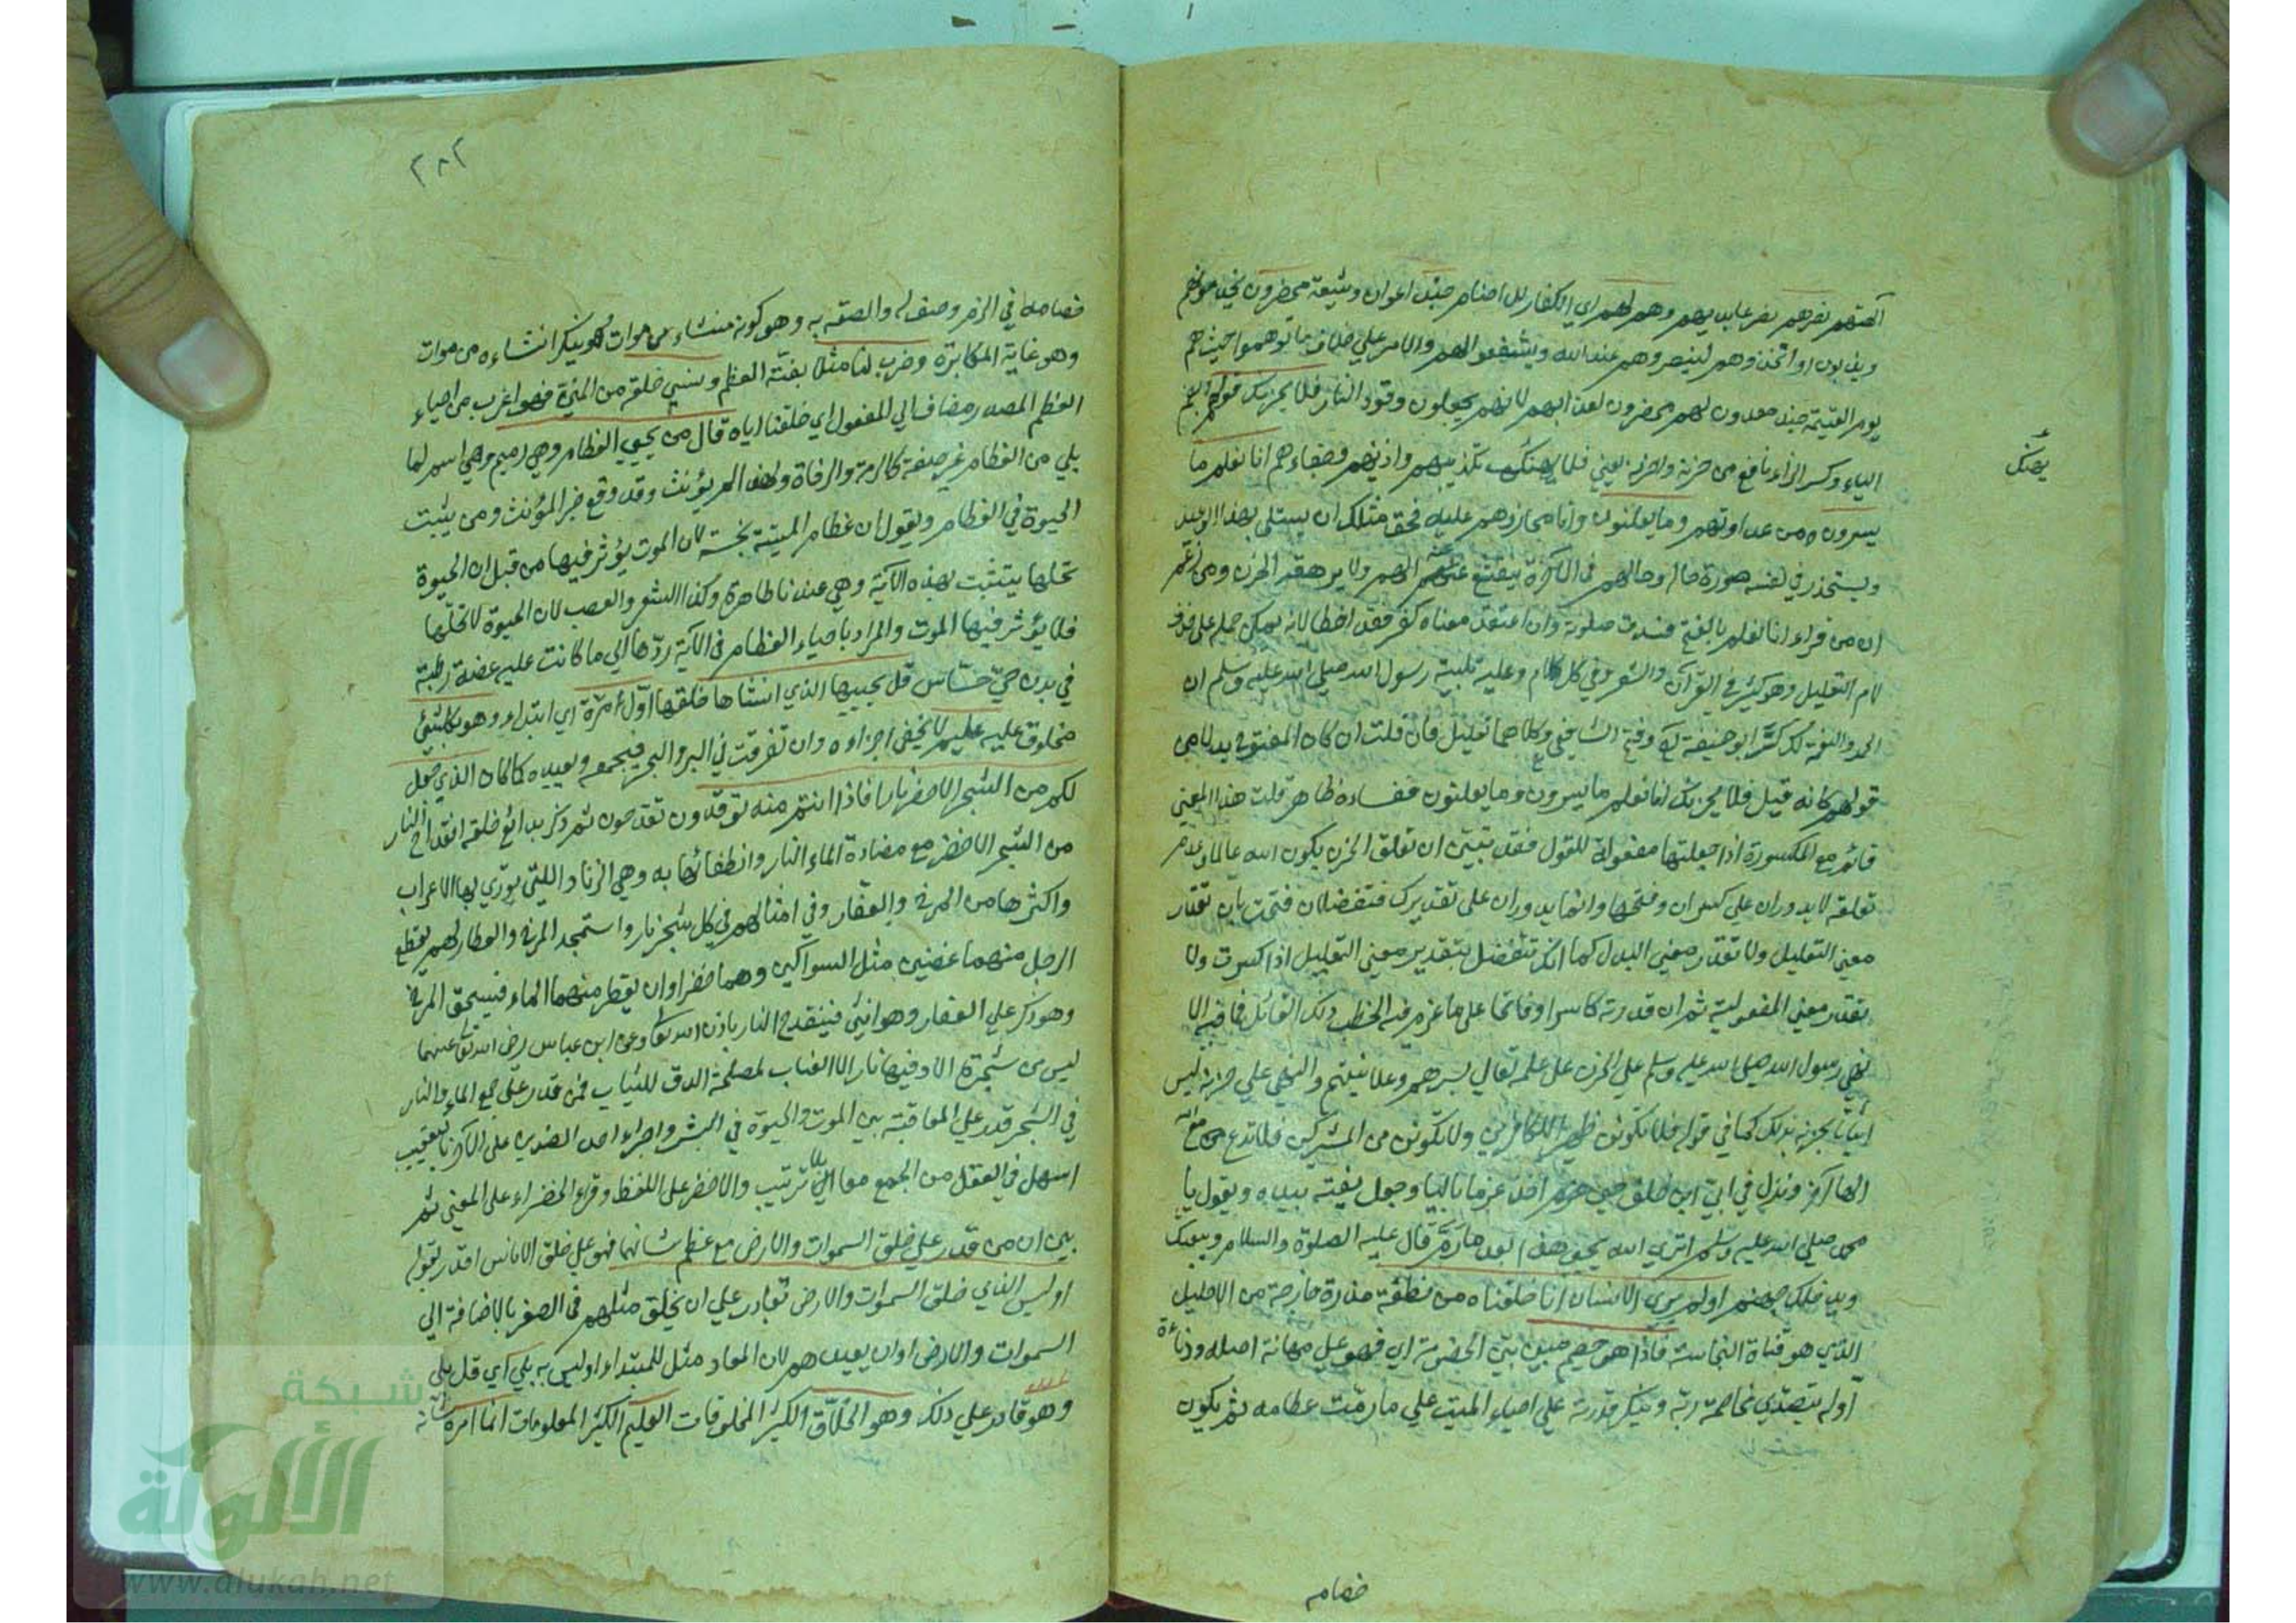 آلهتهم نصرهم نصر عابديهم وهم لهم اي الكفار للاصنام جند اعوان وشيعة محضرون يخدمونهم
ويذبون او اتخذوهم لينصروهم عند الله ويشفعوا لهم والامر علي خلاف ما توهموا حيث هم
يوم القيمة جند معدون لهم محضرون لعذابهم لانهم يجعلون وقود النار فلا يحزنك قولهم بضم
الياء وكسر الزاء نافع من حزنه واحزنه يعني فلا يهمنك تكذيبهم واذيهم وجفاءهم انا نعلم ما
يهمنك
يسرون من عداوتهم وما يعلنون وانا مجازوهم عليه فحق مثلك ان يتسلي بهذا الوعيد
ويستحضر في نفسه صورة حاله وحالهم في الآخرة حتي ينقشع عنه الهم ولا يرهقه الحزن ومن زعم
ان من قراء انا نعلم بالفتح فسدت صلوته وان اعتقد معناه كفر فقد اخطا لانه يمكن حمله علي حذف
لام التعليل وهو كثير في القرآن والشعر وفي كل كلام وعليه تلبية رسول الله صلي الله عليه وسلم ان
الحمد والنعمة لك كسر ابو حنيفة وفتح الشافعي وكلاهما تعليل فان قلت ان كان المفتوح بدلا من
قولهم كانه قيل فلا يحزنك انا نعلم ما يسرون وما يعلنون ففساده ظاهر قلت هذا المعني
قائم مع المكسورة اذا جعلتها مفعولة للقول فقد تبين ان تعلق الحزن بكون الله عالما وعدم
تعلقه لا يدوران علي كسر ان وفتحها وانما يدوران علي تقديرك فتفصل ان فتحت بان تقدر
معني التعليل ولا تقدر معني البدل كما انك تفصل بتقدير معني التعليل اذا كسرت ولا
تقدر معني المفعولية ثم ان قدرته كاسرا او فاتحا علي ما عزم فيه الخطب ذلك القائل فما فيه الا
نهي رسول الله صلي الله عليه وسلم علي الحزن علي علمه تعالي بسرهم وعلانيتهم والنهي علي حزنه ليس
اثباتا بحزنه بذلك كما في قوله فلا تكونن ظهيرا للكافرين ولا تكونن من المشركين فلا تدع مع الله
الها آخر ونزل في ابي ابن خلف حين اخذ عظما باليا وجعل يفته بيده ويقول يا
محمد صلي الله عليه وسلم اتري الله يحيي هذا بعد ما رم قال عليه الصلوة والسلام ويبعثك
ويدخلك جهنم اولم ير الانسان انا خلقناه من نطفة مذرة خارجة من الاحليل
الذي هو قناة النجاسة فاذا هو خصيم مبين بين الخصومة اي فهو علي مهانة اصله ودناءة
اوله يتصدي مخاصمة ربه وينكر قدرته علي احياء الميت علي ما رمت عظامه ثم يكون
خصامه
٢٨٢
خصامه في الزم وصف له والصقه به وهو كونه منشاء من موات وهو ينكر انشاءه من موات
وهو غاية المكابرة وضرب لنا مثلا بفته العظم ونسي خلقه من المني فهو اغرب من احياء
العظم المصدر مضاف الي المفعول اي خلقنا اياه قال من يحيي العظام وهي رميم وهي اسم لما
بلي من العظام غير صفة كالرمة والرفاة ولهذا لم يؤنث وقد وقع خبر المؤنث ومن يثبت
الحيوة في العظام ويقول ان عظام الميتة نجسة لان الموت يؤثر فيها من قبل ان الحيوة
تحلها يتشبث بهذه الآية وهي عندنا طاهرة وكذا الشعر والعصب لان الحيوة لا تحلها
فلا يؤثر فيها الموت والمراد باحياء العظام في الآية ردها الي ما كانت عليه غضة رطبة
في بدن حي حساس قل يحييها الذي انشاها خلقها اول مرة اي ابتداء وهو بكل شئ
مخلوق عليه عليم لا يخفي اجزاءه وان تفرقت في البر والبحر فيجمعه ويعيده كما كان الذي جعل
لكم من الشجر الاخضر نارا فاذا انتم منه توقدون تقدحون ثم ذكر بدائع خلقه انقداح النار
من الشجر الاخضر مع مضادة الماء النار وانطفائها به وهي الزناد اللتي يوري بها الاعراب
واكثرها من المرخ والعفار وفي امثالهم في كل شجر نار واستمجد المرخ والعفار لهم يقطع
الرجل منهما غصنين مثل السواكين وهما خضراوان يقطر منهما الماء فيسحق المرخ
وهو ذكر علي العفار وهو انثي فينقدح النار باذن الله تعالي وعن ابن عباس رضي الله تعالي عنهما
ليس من شجرة الا وفيها نار الا العناب لمصلحة الدق للثياب فمن قدر علي جمع الماء والنار
في الشجر قدر علي المعاقبة بين الموت والحيوة في البشر واجراء احد الضدين علي الآخر بالتعقيب
اسهل في العقل من الجمع معا بلا ترتيب والاخضر علي اللفظ وقراء الخضراء علي المعني ثم
بين ان من قدر علي خلق السموات والارض مع عظم شانهما فهو علي خلق الاناس اقدر بقوله
اوليس الذي خلق السموات والارض بقادر علي ان يخلق مثلهم في الصغر بالاضافة الي
السموات والارض او ان يعيدهم لان المعاد مثل للمبتداء وليس به بلي اي قل بلي
وهو قادر علي ذلك وهو الخلاق الكثير المخلوقات العليم الكثير المعلومات انما امره شانه
شبكة
الألوكة
www.alukah.net